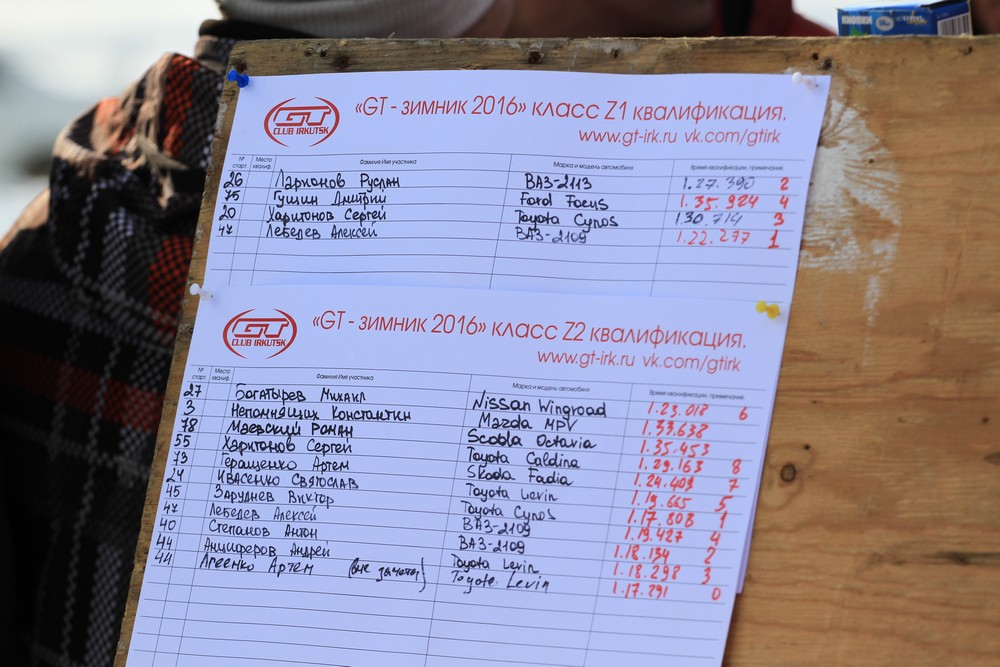 КНОПКИ
GT
CLUB IRKUTSK
«GT - зимник 2016» класс Z1 квалификация.
www.gt-irk.ru vk.com/gtirk
№ старт. Место квалиф. Фамилия Имя участника Марка и модель автомобиля Время квалификации, примечание.
26 Ларионов Руслан ВАЗ-2113 1.27.390 2
75 Гущин Дмитрий Ford Focus 1.35.924 4
20 Харитонов Сергей Toyota Cynos 1.30.714 3
47 Лебедев Алексей ВАЗ-2109 1.22.277 1
GT
CLUB IRKUTSK
«GT - зимник 2016» класс Z2 квалификация.
www.gt-irk.ru vk.com/gtirk
№ старт. Место квалиф. Фамилия Имя участника Марка и модель автомобиля Время квалификации, примечание.
27 Богатырев Михаил Nissan Wingroad 1.23.018 6
3 Непомнящих Константин Mazda MPV 1.33.638
78 Маевский Роман Scoda Octavia 1.35.453
55 Харитонов Сергей Toyota Caldina 1.29.163 8
73 Геращенко Артем Skoda Fadia 1.24.409 7
24 Ивасенко Святослав Toyota Levin 1.19.665 5
45 Заруднев Виктор Toyota Cynos 1.17.808 1
47 Лебедев Алексей ВАЗ-2109 1.19.427 4
40 Степанов Антон ВАЗ-2109 1.18.134 2
44 Анциферов Андрей Toyota Levin 1.18.298 3
44 Агеенко Артем (вне зачета) Toyota Levin 1.17.291 0